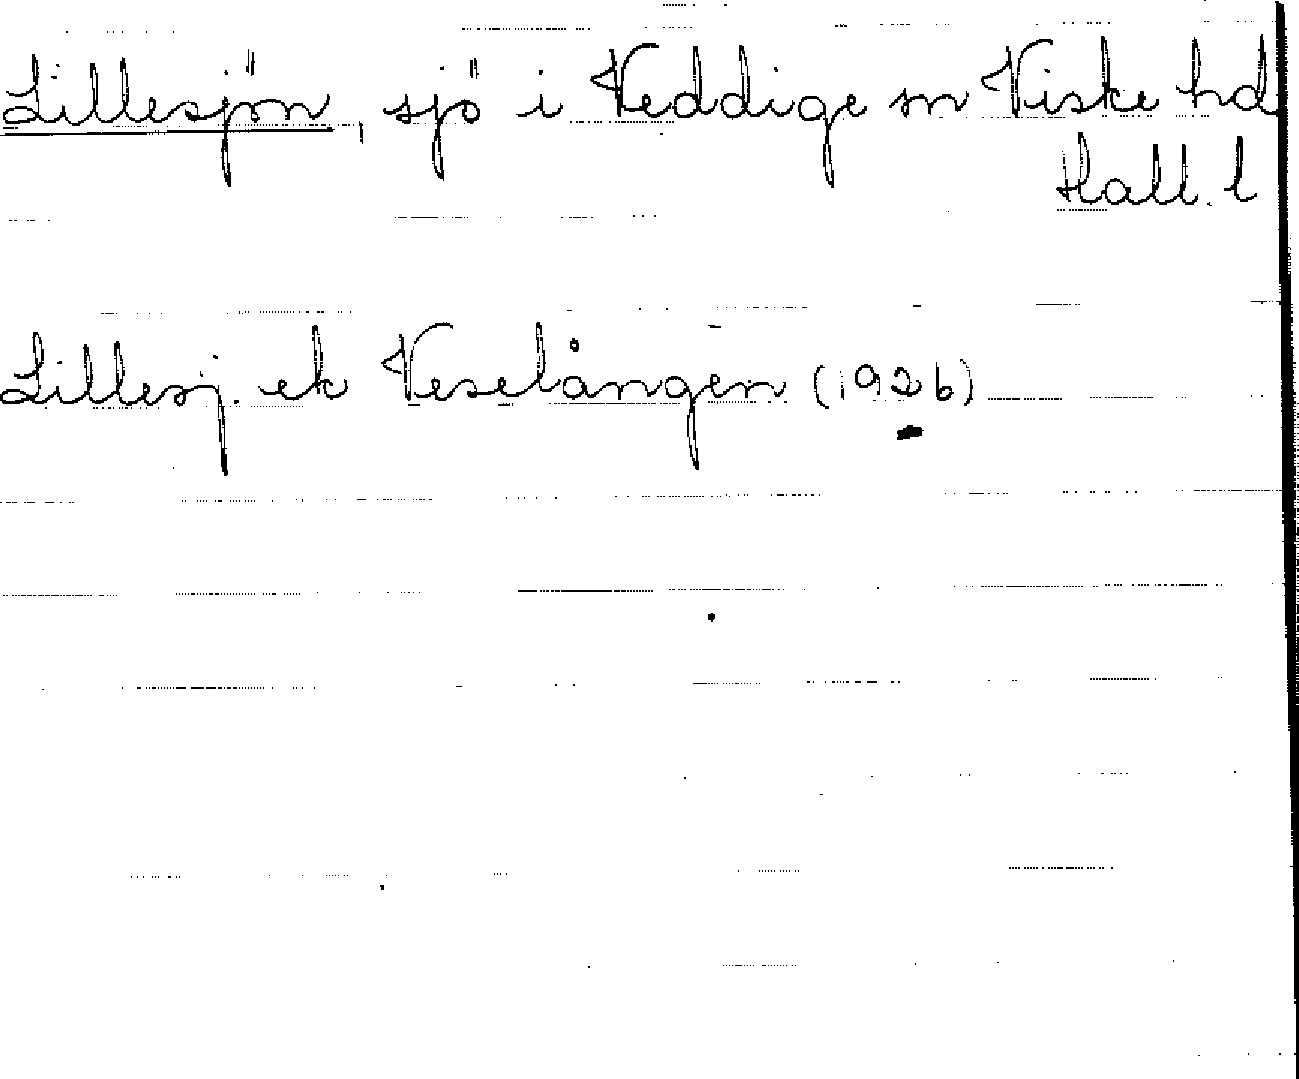 Lillesjön, sjö i Veddige sn Viske hd
Hall. l
Lillesj. ek Veselången (1926)